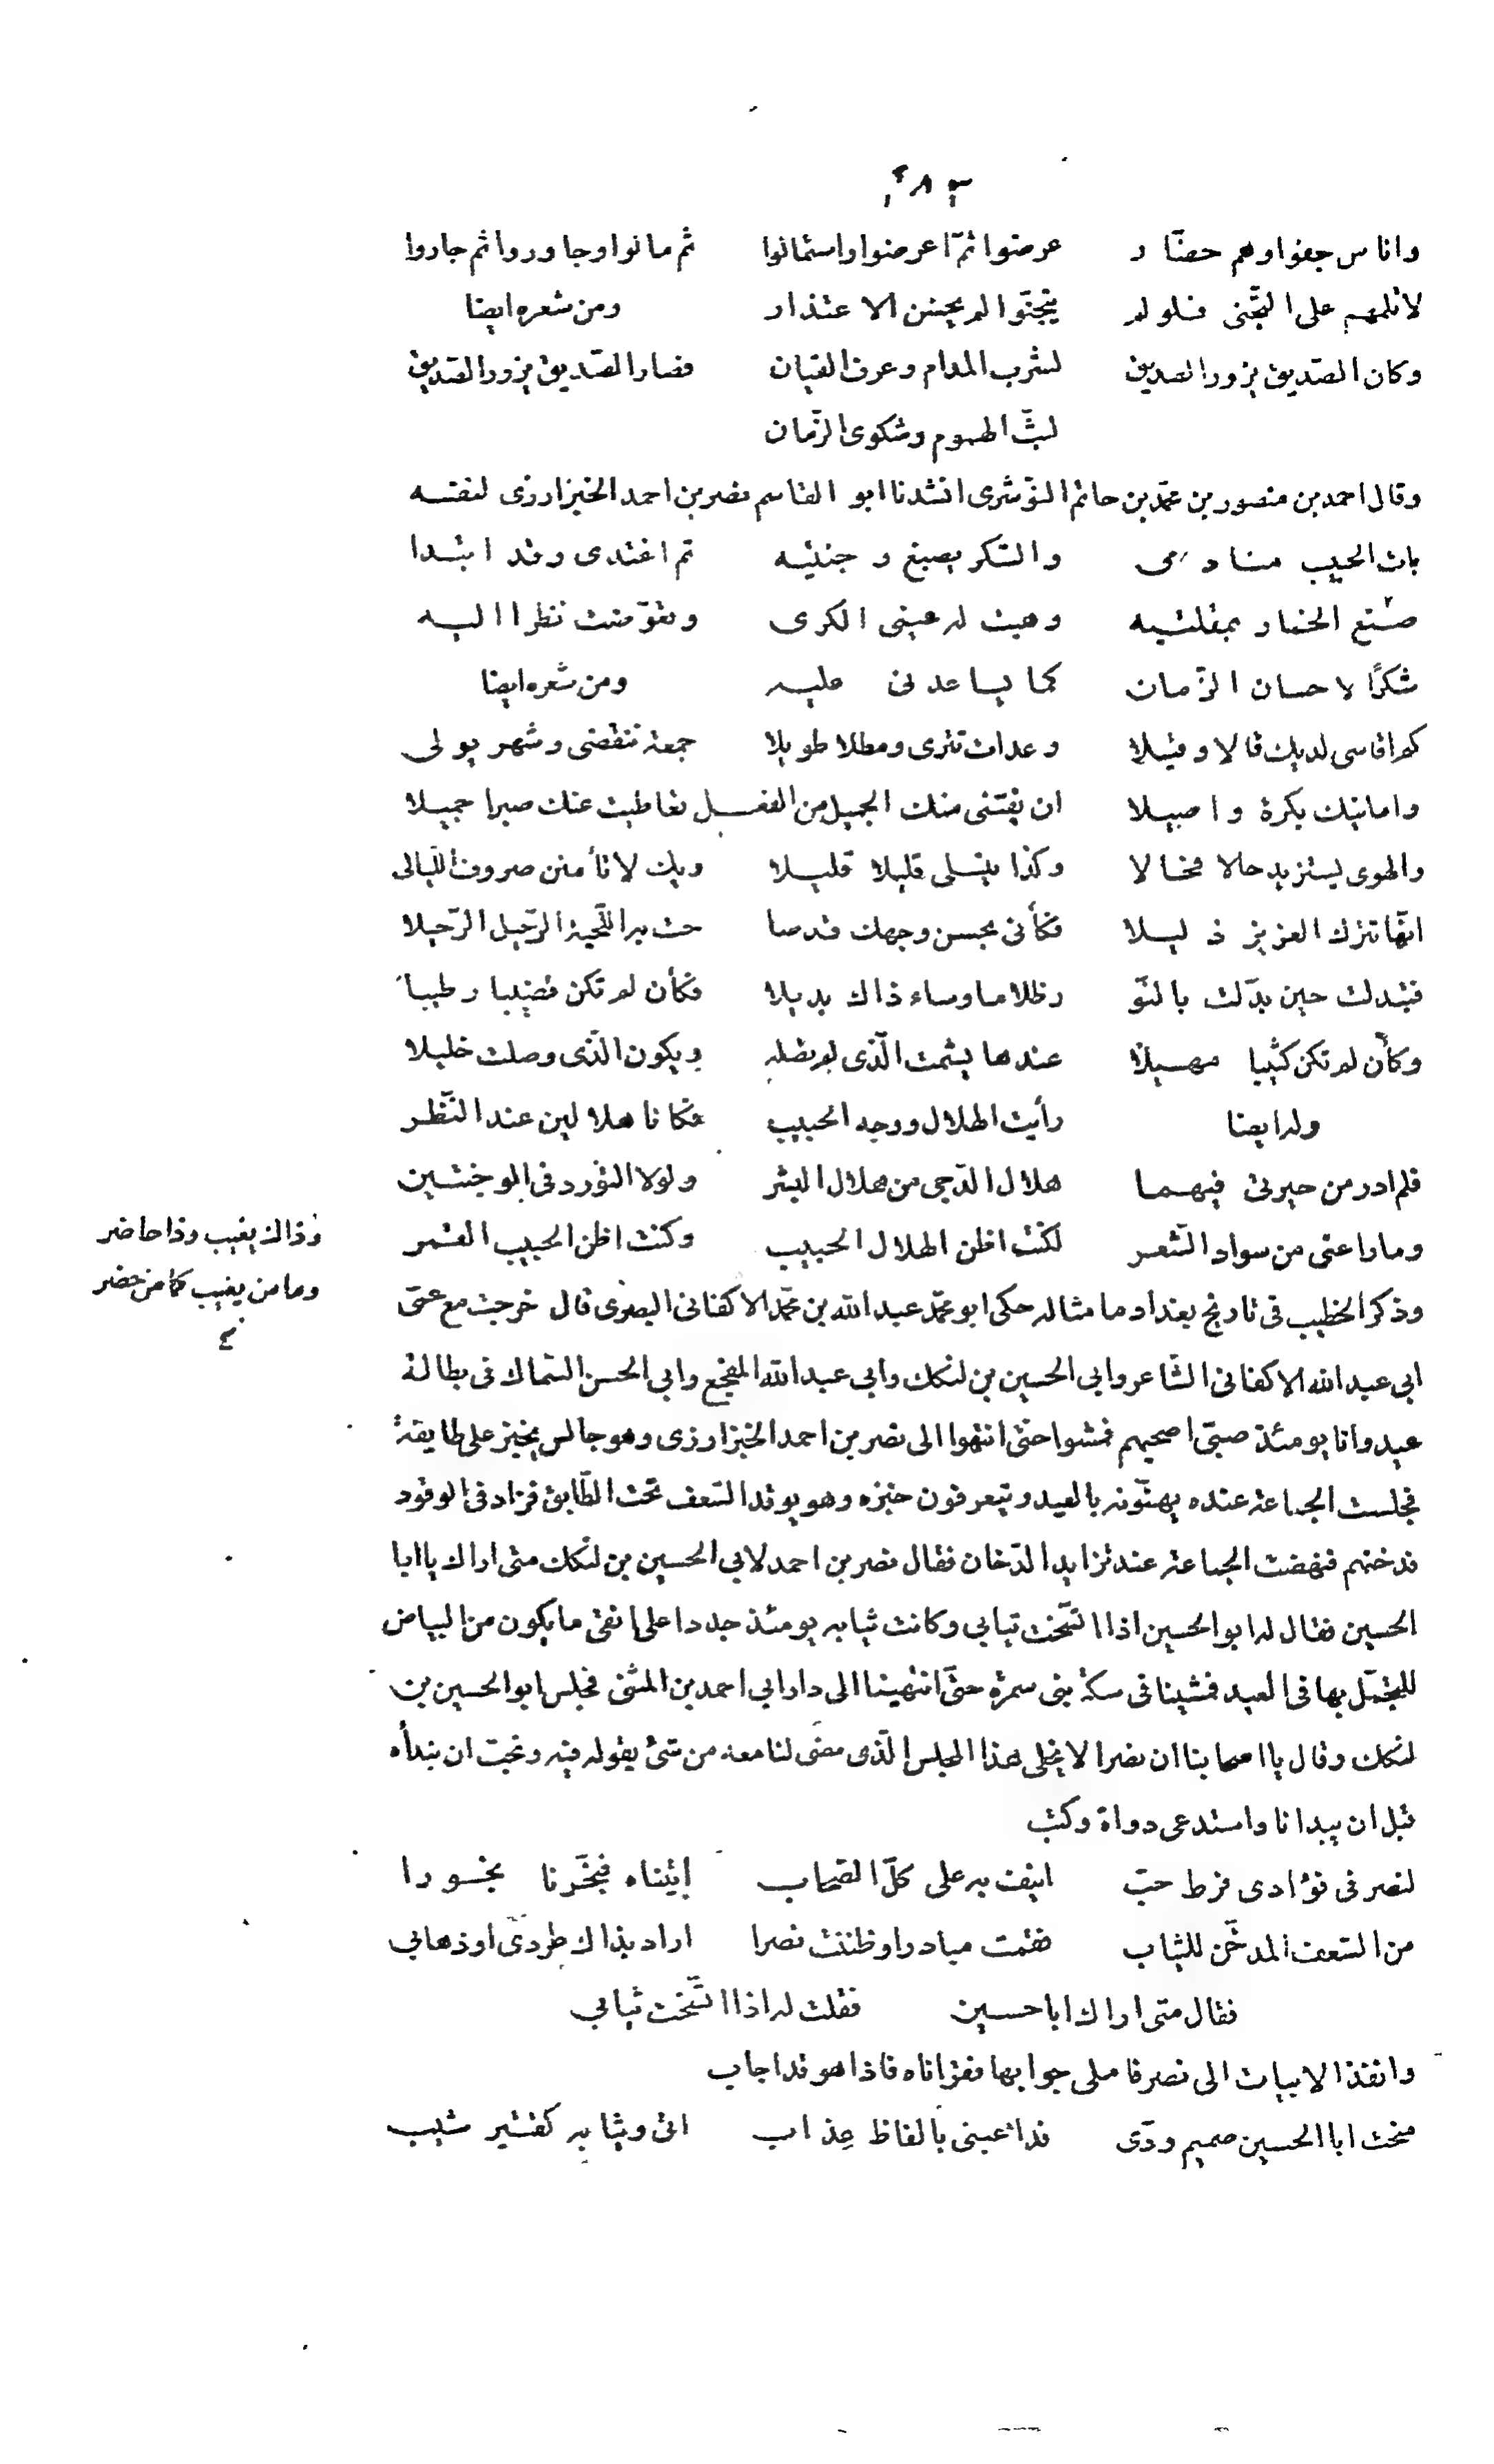 ٢٨٣
واناس جفوا وهم حضّار عرضوا ثمّ اعرضوا واستمالوا ثم مالوا وجاوروا ثم جاروا
لا تلمهم على التجنّى فلو لم يتجنّوا لم يحسن الاعتذار ومن شعره ايضا
وكان الصّديق يزور الصديق لشرب المدام وعزف القيان فصار الصّديق يزور الصّديق
لبثّ الهموم وشكوى الزّمان
وقال احمد بن منصور بن محمّد بن حاتم النّوشرى انشدنا ابو القاسم نصر بن احمد الخبزارزى لنفسه
بات الحبيب منادمى والسّكر يصبغ وجنتيه ثم اغتدى وقد ابتدا
صنع الخمار بمقلتيه وهبت له عينى الكرى وتعوّضت نظرا اليه
شكرًا لاحسان الزّمان كما يساعدنى عليه ومن شعره ايضا
كم اقاسى لديك قالا وقيلا وعدات تترى ومطلا طويلا جمعة تنقضى وشهر يولى
وامانيك بكرة واصيلا ان يفتنى منك الجميل من الفعـل تعاطيت عنك صبرا جميلا
والهوى يستزيد حالا فحالا وكذا ينسلى قليلا قليلا ويك لا تأمنن صروف اللّيالى
انّها تترك العزيز ذليلا فكأنى بحسن وجهك قد صا حت به اللّحية الرّحيل الرّحيلا
فتبدلت حين بدّلت بالنّو ر ظلاما وساء ذاك بديلا فكأن لم تكن قضيبا رطيبا
وكأن لم تكن كثيبا مهيلا عندها يشمت الّذى لم تصله ويكون الّذى وصلت خليلا
وله ايضا رأيت الهلال ووجه الحبيب فكانا هلالين عند النّظر
فلم ادر من حيرتى فيهما هلال الدّجى من هلال البشر ولولا التّورد فى الوجنتين
وما راعنى من سواد الشّعر لكنت اظن الهلال الحبيب وكنت اظن الحبيب القمر
وذاك يغيب وذا حاضر
وما من يغيب كما من حضر
وذكر الخطيب فى تاريخ بغداد ما مثاله حكى ابو محمّد عبد الله بن محمّد الاكفانى البصرى قال خرجت مع عمّى
ابى عبد الله الاكفانى الشّاعر وابى الحسين بن لنكك وابى عبد الله المفجّع وابى الحسن السّماك فى بطالة
عيد وانا يومئذ صبىّ اصحبهم فمشوا حتّى انتهوا الى نصر بن احمد الخبزارزى وهو جالس يخبز على طابقة
فجلست الجماعة عنده يهنّونه بالعيد ويتعرفون خبزه وهو يوقد السّعف تحت الطّابق فزاد فى الوقود
فدخنهم فنهضت الجماعة عند تزايد الدّخان فقال نصر بن احمد لابى الحسين بن لنكك متى اراك يا ابا
الحسين فقال له ابو الحسين اذا اتّسخت ثيابى وكانت ثيابه يومئذ جددا على انقى ما يكون من البياض
للتجمّل بها فى العيد فمشينا فى سكّة بنى سمرة حتّى انتهينا الى دار ابى احمد بن المثنى فجلس ابو الحسين بن
لنكك وقال يا اصحابنا ان نصرا لا يخلى هذا المجلس الّذى مضى لنا معه من شئ يقوله فيه ونحبّ ان نبدأه
قبل ان يبدانا واستدعى دواة وكتب
لنصر فى فؤادى فرط حبّ انيف به على كلّ الصّحاب اتيناه فبخّرنا بخورا
من السّعف المدخّن للثياب فقمت مبادرا وظننت نصرا اراد بذاك طردى او ذهابى
فقال متى اراك ابا حسين فقلت له اذا اتّسخت ثيابى
وانفذ الابيات الى نصر فاملى جوابها فقراناه فاذا هو قد اجاب
منحت ابا الحسين صميم ودّى فداعبنى بالفاظ عذاب اتى وثيابه كقتير شيب